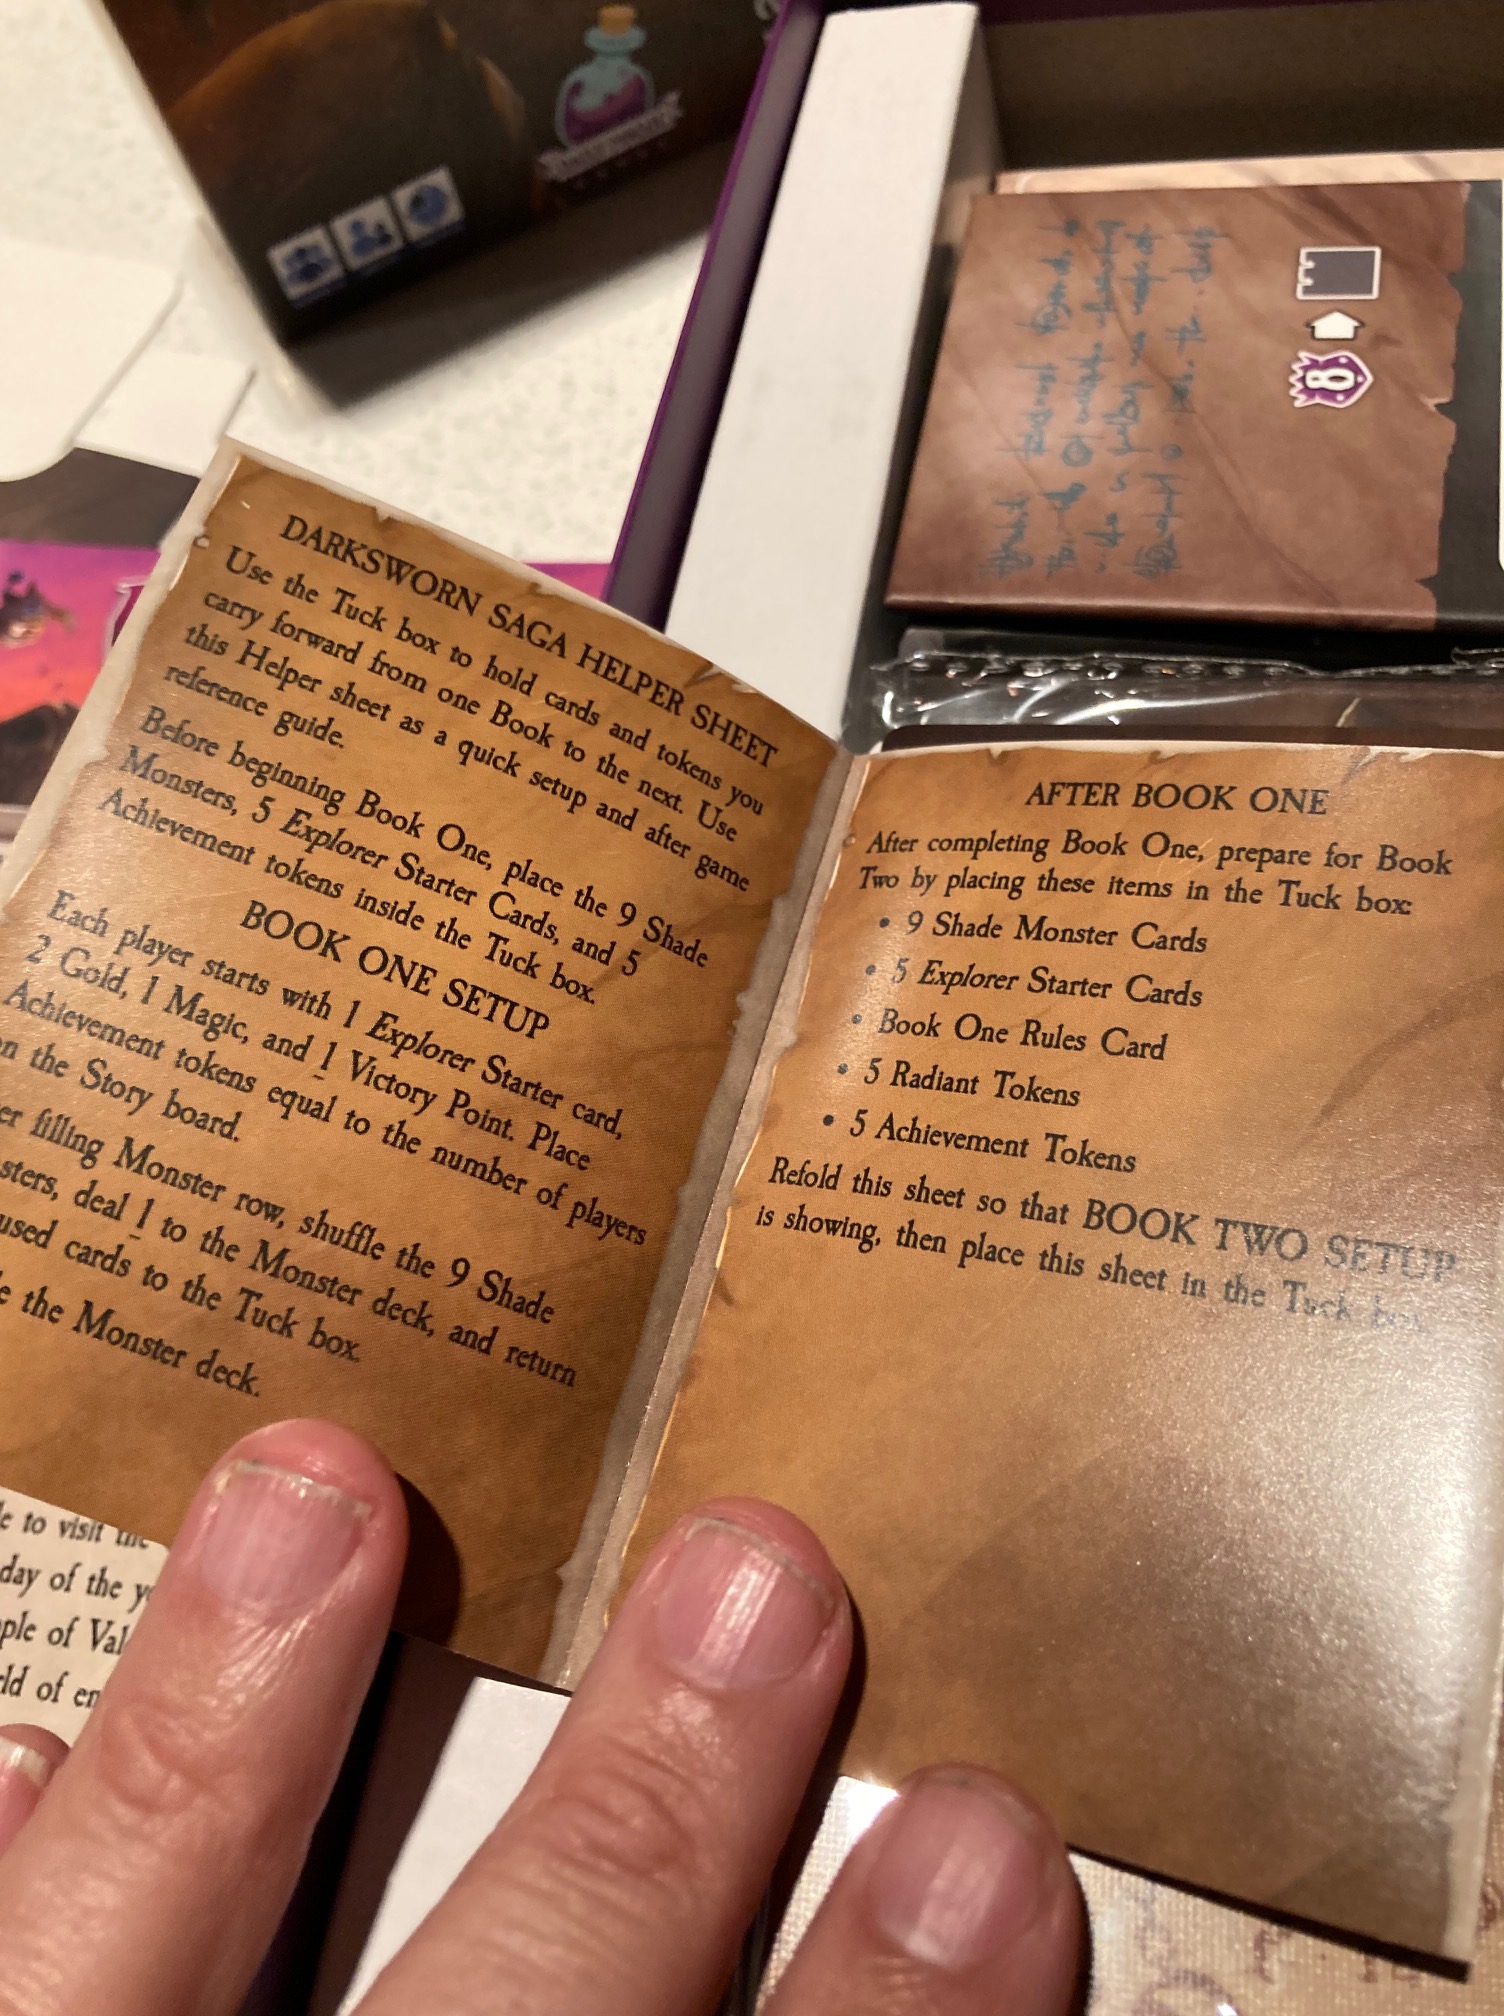 DARKSWORN SAGA HELPER SHEET
Use the Tuck box to hold cards and tokens you
carry forward from one Book to the next. Use
this Helper sheet as a quick setup and after game
reference guide.
Before beginning Book One, place the 9 Shade
Monsters, 5 Explorer Starter Cards, and 5
Achievement tokens inside the Tuck box.
BOOK ONE SETUP
Each player starts with 1 Explorer Starter card,
2 Gold, 1 Magic, and 1 Victory Point. Place
Achievement tokens equal to the number of players
on the Story board.
filling Monster row, shuffle the 9 Shade
deal 1 to the Monster deck, and return
cards to the Tuck box.
the Monster deck.
AFTER BOOK ONE
After completing Book One, prepare for Book
Two by placing these items in the Tuck box:
• 9 Shade Monster Cards
• 5 Explorer Starter Cards
• Book One Rules Card
• 5 Radiant Tokens
• 5 Achievement Tokens
Refold this sheet so that BOOK TWO SETUP
is showing, then place this sheet in the Tuck box.
8
to visit the
day of the
of
of